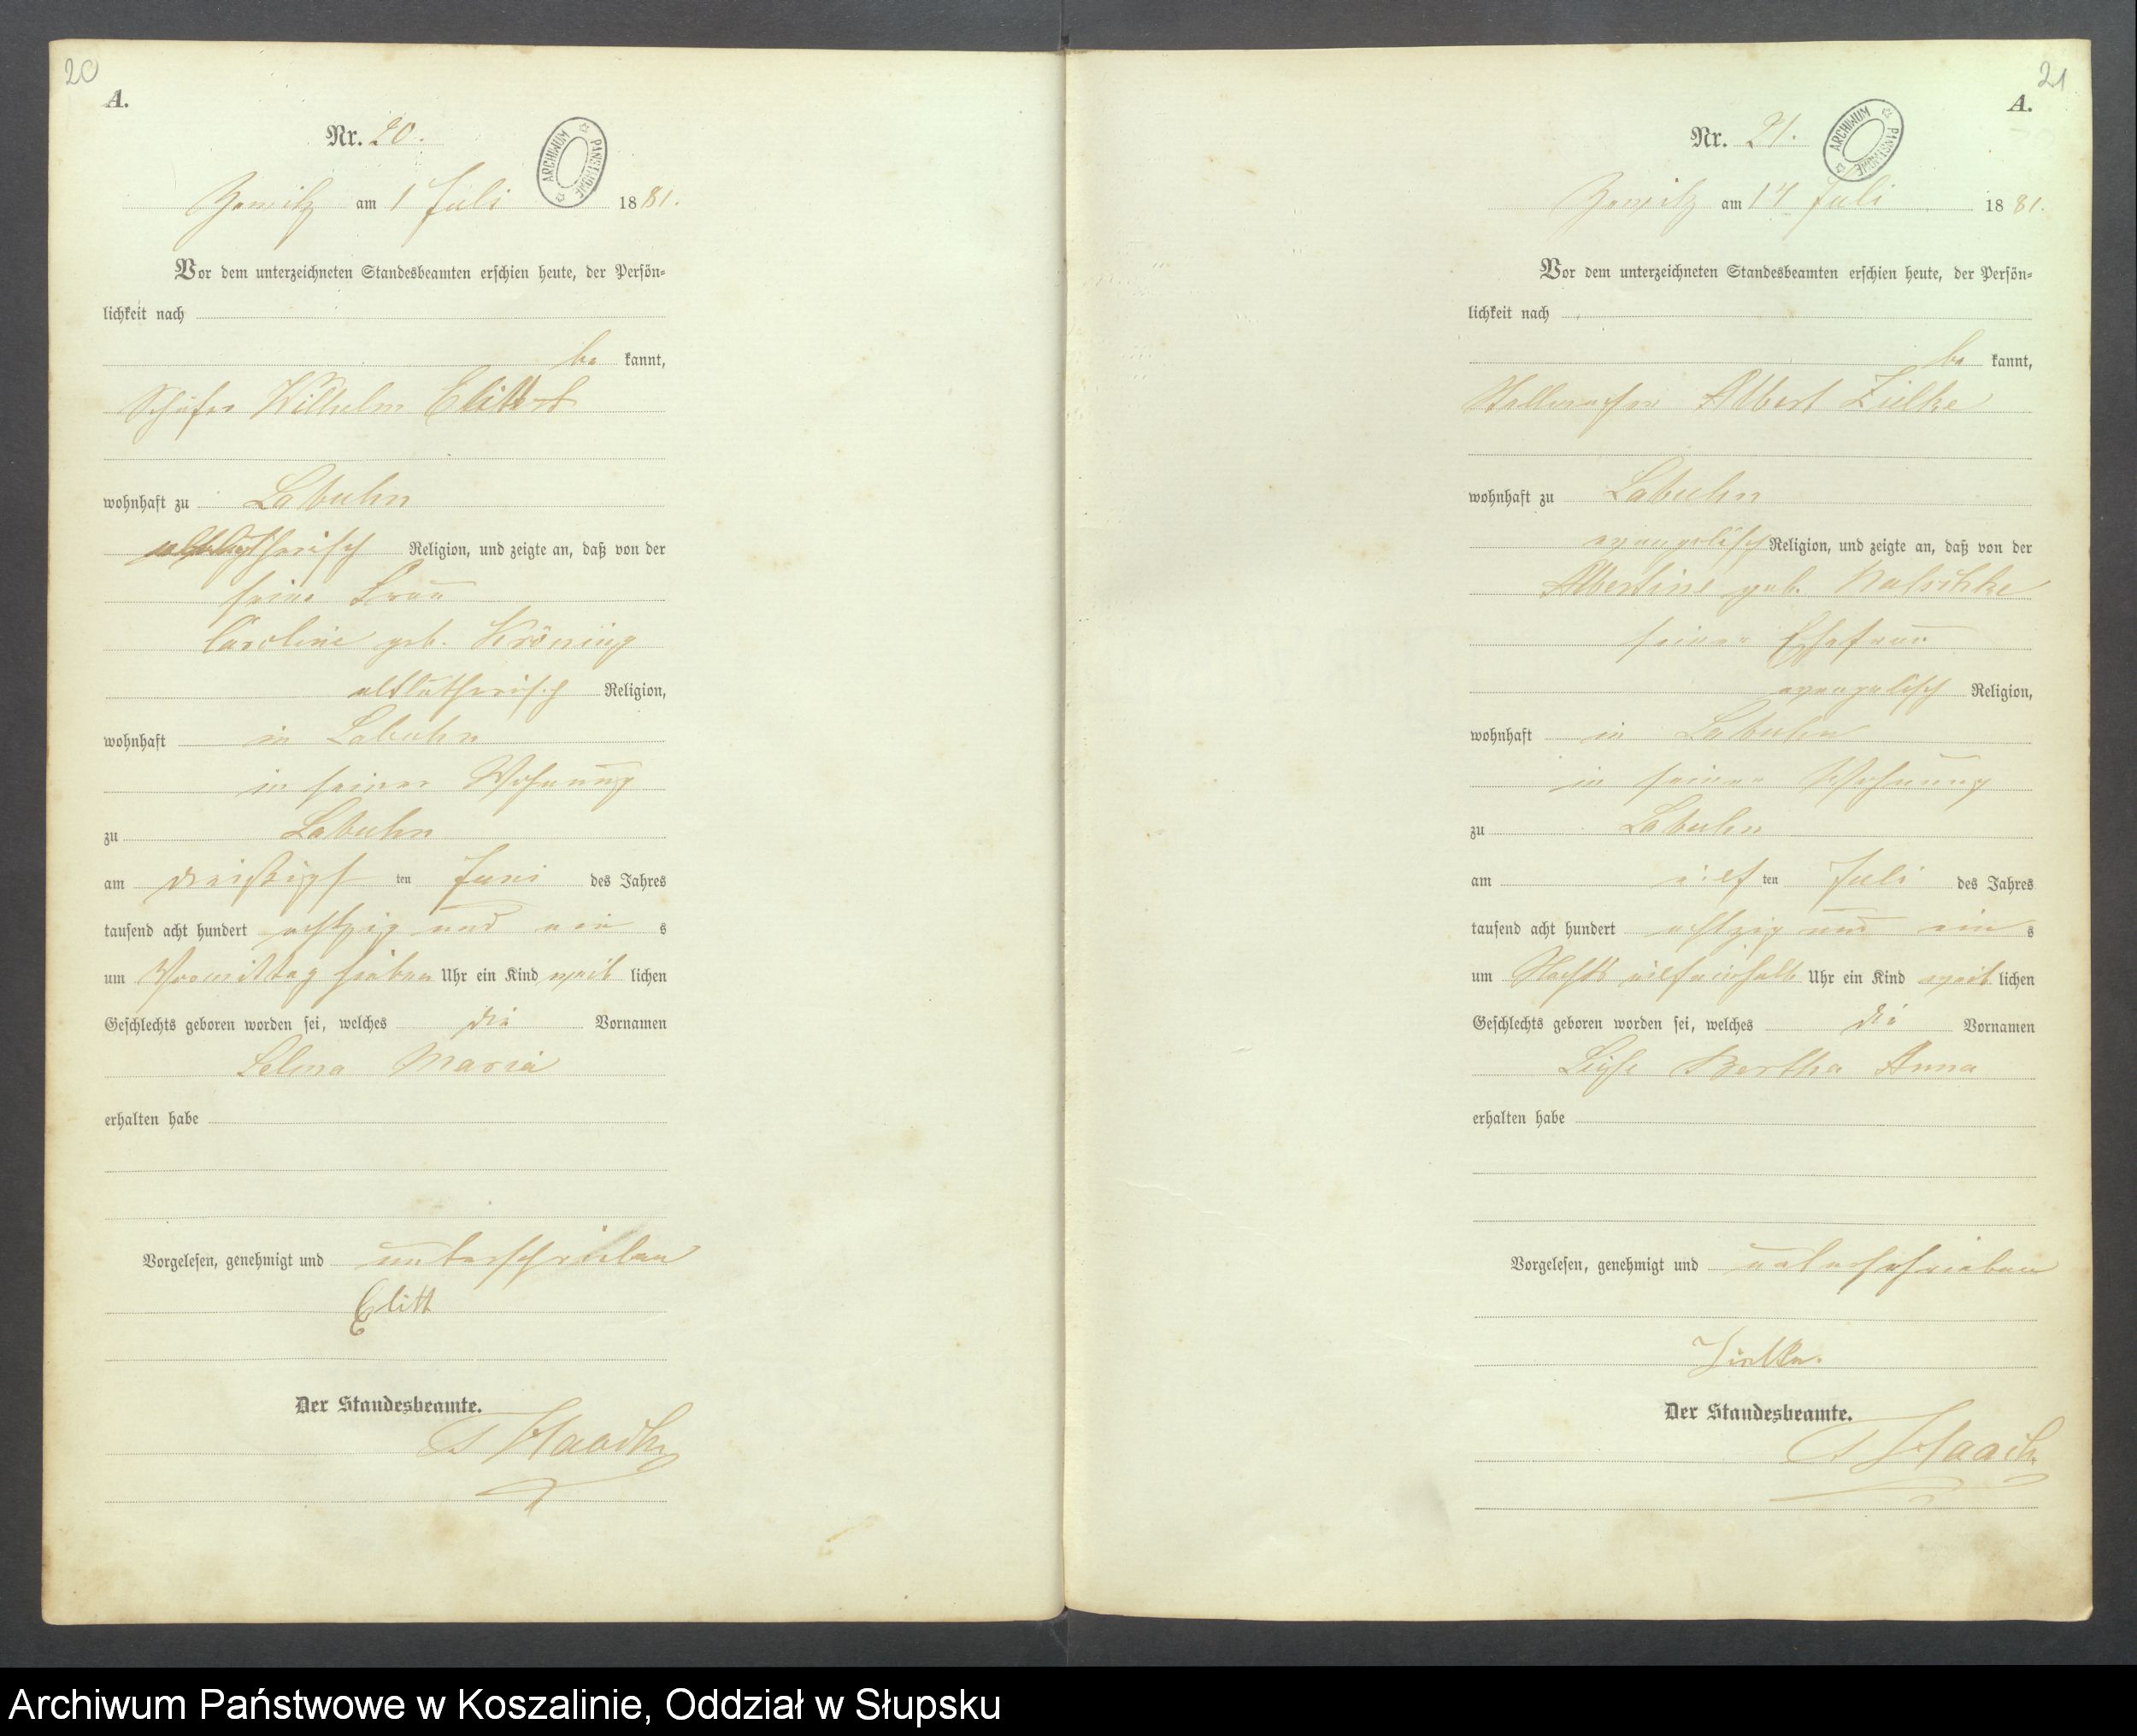 20
A.
Nr. 20.
ARCHIWUM PAŃSTWOWE
am 1 Juli 1881.
Vor dem unterzeichneten Standesbeamten erschien heute, der Persön-
lichkeit nach
be kannt,
Schäfer Wilhelm
wohnhaft zu Labuhn
altlutherisch Religion, und zeigte an, daß von der
seine Frau
Caroline geb. Kröning
altlutherisch Religion,
wohnhaft in Labuhn
in seiner Wohnung
zu Labuhn
am dreißigst ten Juni des Jahres
tausend acht hundert achtzig und ein s
um Vormittag sieben Uhr ein Kind weib lichen
Geschlechts geboren worden sei, welches die Vornamen
Selma Maria
erhalten habe
Vorgelesen, genehmigt und unterschrieben
Elitt
Der Standesbeamte.
21
A.
Nr. 21.
ARCHIWUM PAŃSTWOWE
am Juli 1881.
Vor dem unterzeichneten Standesbeamten erschien heute, der Persön-
lichkeit nach
be kannt,
Albert Zielke
wohnhaft zu Labuhn
evangelisch Religion, und zeigte an, daß von der
Albertine geb.
seiner Ehefrau
evangelisch Religion,
wohnhaft in Labuhn
in seiner Wohnung
zu Labuhn
am elf ten Juli des Jahres
tausend acht hundert achtzig und ein s
um Nachts Uhr ein Kind weib lichen
Geschlechts geboren worden sei, welches die Vornamen
Bertha Anna
erhalten habe
Vorgelesen, genehmigt und unterschrieben
Zielke.
Der Standesbeamte.
Archiwum Państwowe w Koszalinie, Oddział w Słupsku